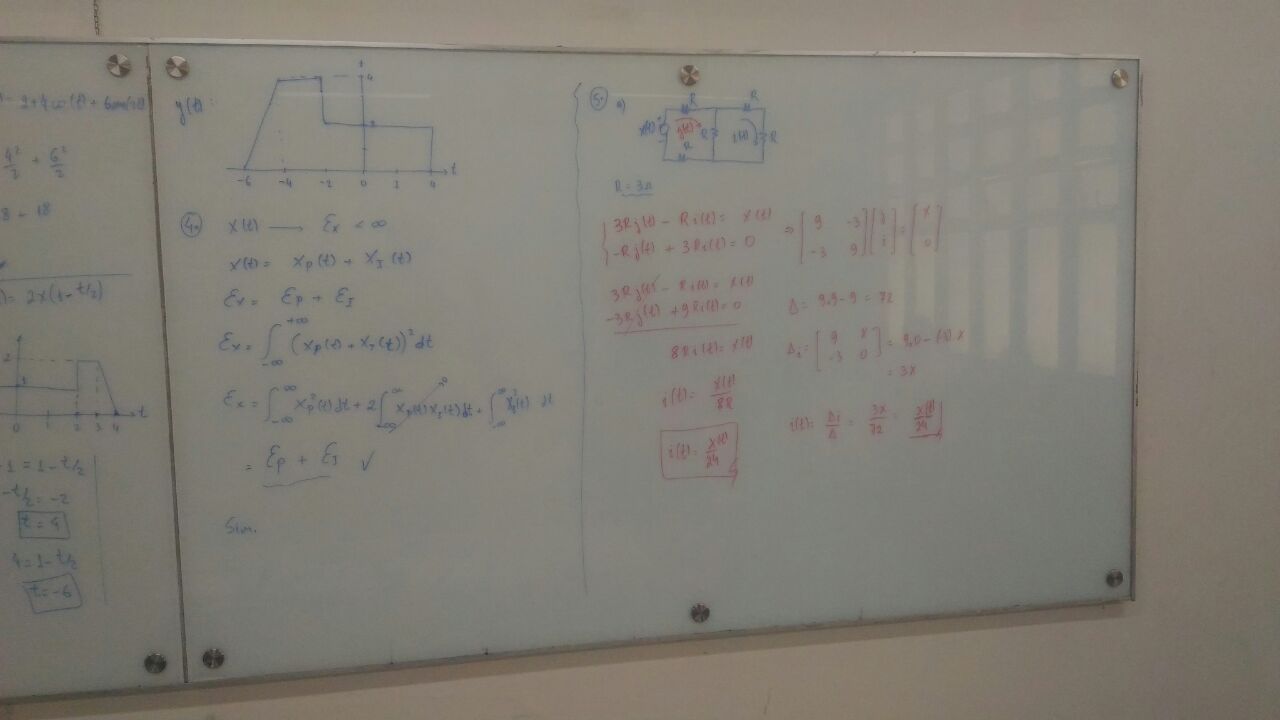 - 2+4cos(t)+6sen(
4²/2 + 6²/2
8 + 18
)= 2x(1-t/2)
2
1
0 1 2 3 4 t
-1 = 1-t/2
-t/2 = -2
t = 4
4 = 1-t/2
t = -6
y(t):
4
2
-6 -4 -2 0 1 4 t
4.
x(t) → Ex < ∞
x(t) = xP(t) + xI(t)
Ex = EP + EI
Ex = ∫_{-∞}^{+∞} (xP(t) + xI(t))² dt
Ex = ∫_{-∞}^{∞} xP²(t) dt + 2∫_{-∞}^{∞} xP(t) xI(t) dt + ∫_{-∞}^{∞} xI²(t) dt
0
= EP + EI ✓
Sim.
5. a)
R R
x(t) + j(t) R i(t) R
R
R = 3Ω
3Rj(t) - Ri(t) = x(t)
-Rj(t) + 3Ri(t) = 0
⇒ [9 -3; -3 9] [j; i] = [x; 0]
3Rj(t) - Ri(t) = x(t)
-3Rj(t) + 9Ri(t) = 0
8Ri(t) = x(t)
i(t) = x(t)/8R
i(t) = x(t)/24
Δ = 9.9 - 9 = 72
Δi = [9 x; -3 0] = 9.0 - (-3).x
= 3x
i(t) = Δi/Δ = 3x/72 = x(t)/24